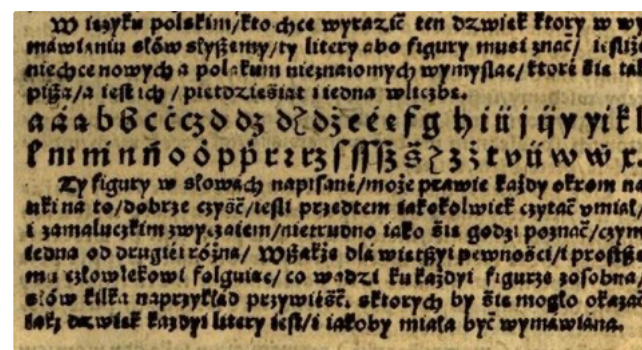 W ięzyku polskim/kto chce wyrazić ten dzwięk ktory w wy
mawianiu słów słyszemy/ty litery abo figury musi znać/ ieśliże
niechce nowych a polakum nieznaiomych wymyslać/ktore śię tak
piszą/a iest ich / pięćdzieśiąt i iedna w liczbę.
a á ą b b́ c ć cz d dz dź dż e é ę f g h i ii j ij y yi k l
ł m ḿ n ń o ó p ṕ r rz ſ ſſ ſz ś z ż ź t v ü w ẃ x
Ty figury w słowach napisané/może prawie każdy okrom na
uki na to/dobrze czyść/iesli przedtem iakokolwiek czytać vmiał/
i zamaluczkim zwyczaiem/nietrudno iako śię godzi poznać/czym
iedna od drugiéi rożna/ Wszakże dla więtszyi pewności/i prostsze
mu człowiekowi folguiąc/ co wadzi ku każdyi figurze zosobna/
słów kilka naprzykład przywieść. sktorych by śię mogło okazać
iaki dzwięk każdyi litery iest/i iakoby miała być wymawiána.